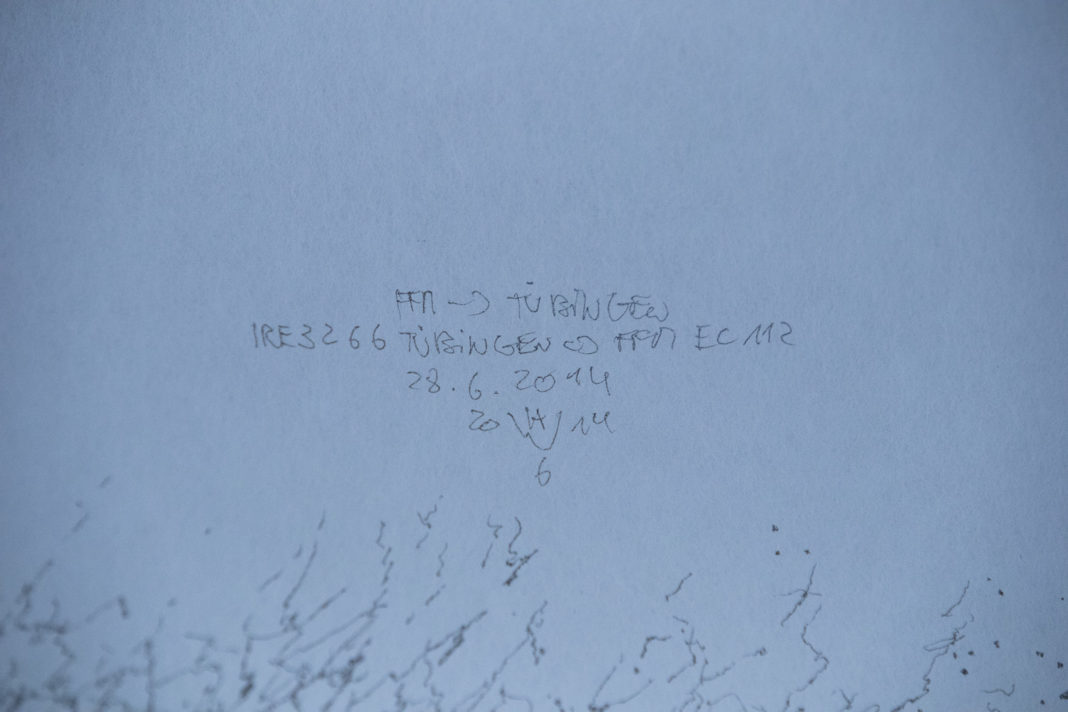 FFM → TÜBINGEN
IRE3266 TÜBINGEN ↔ FFM EC 112
28.6.2014
20 14
6